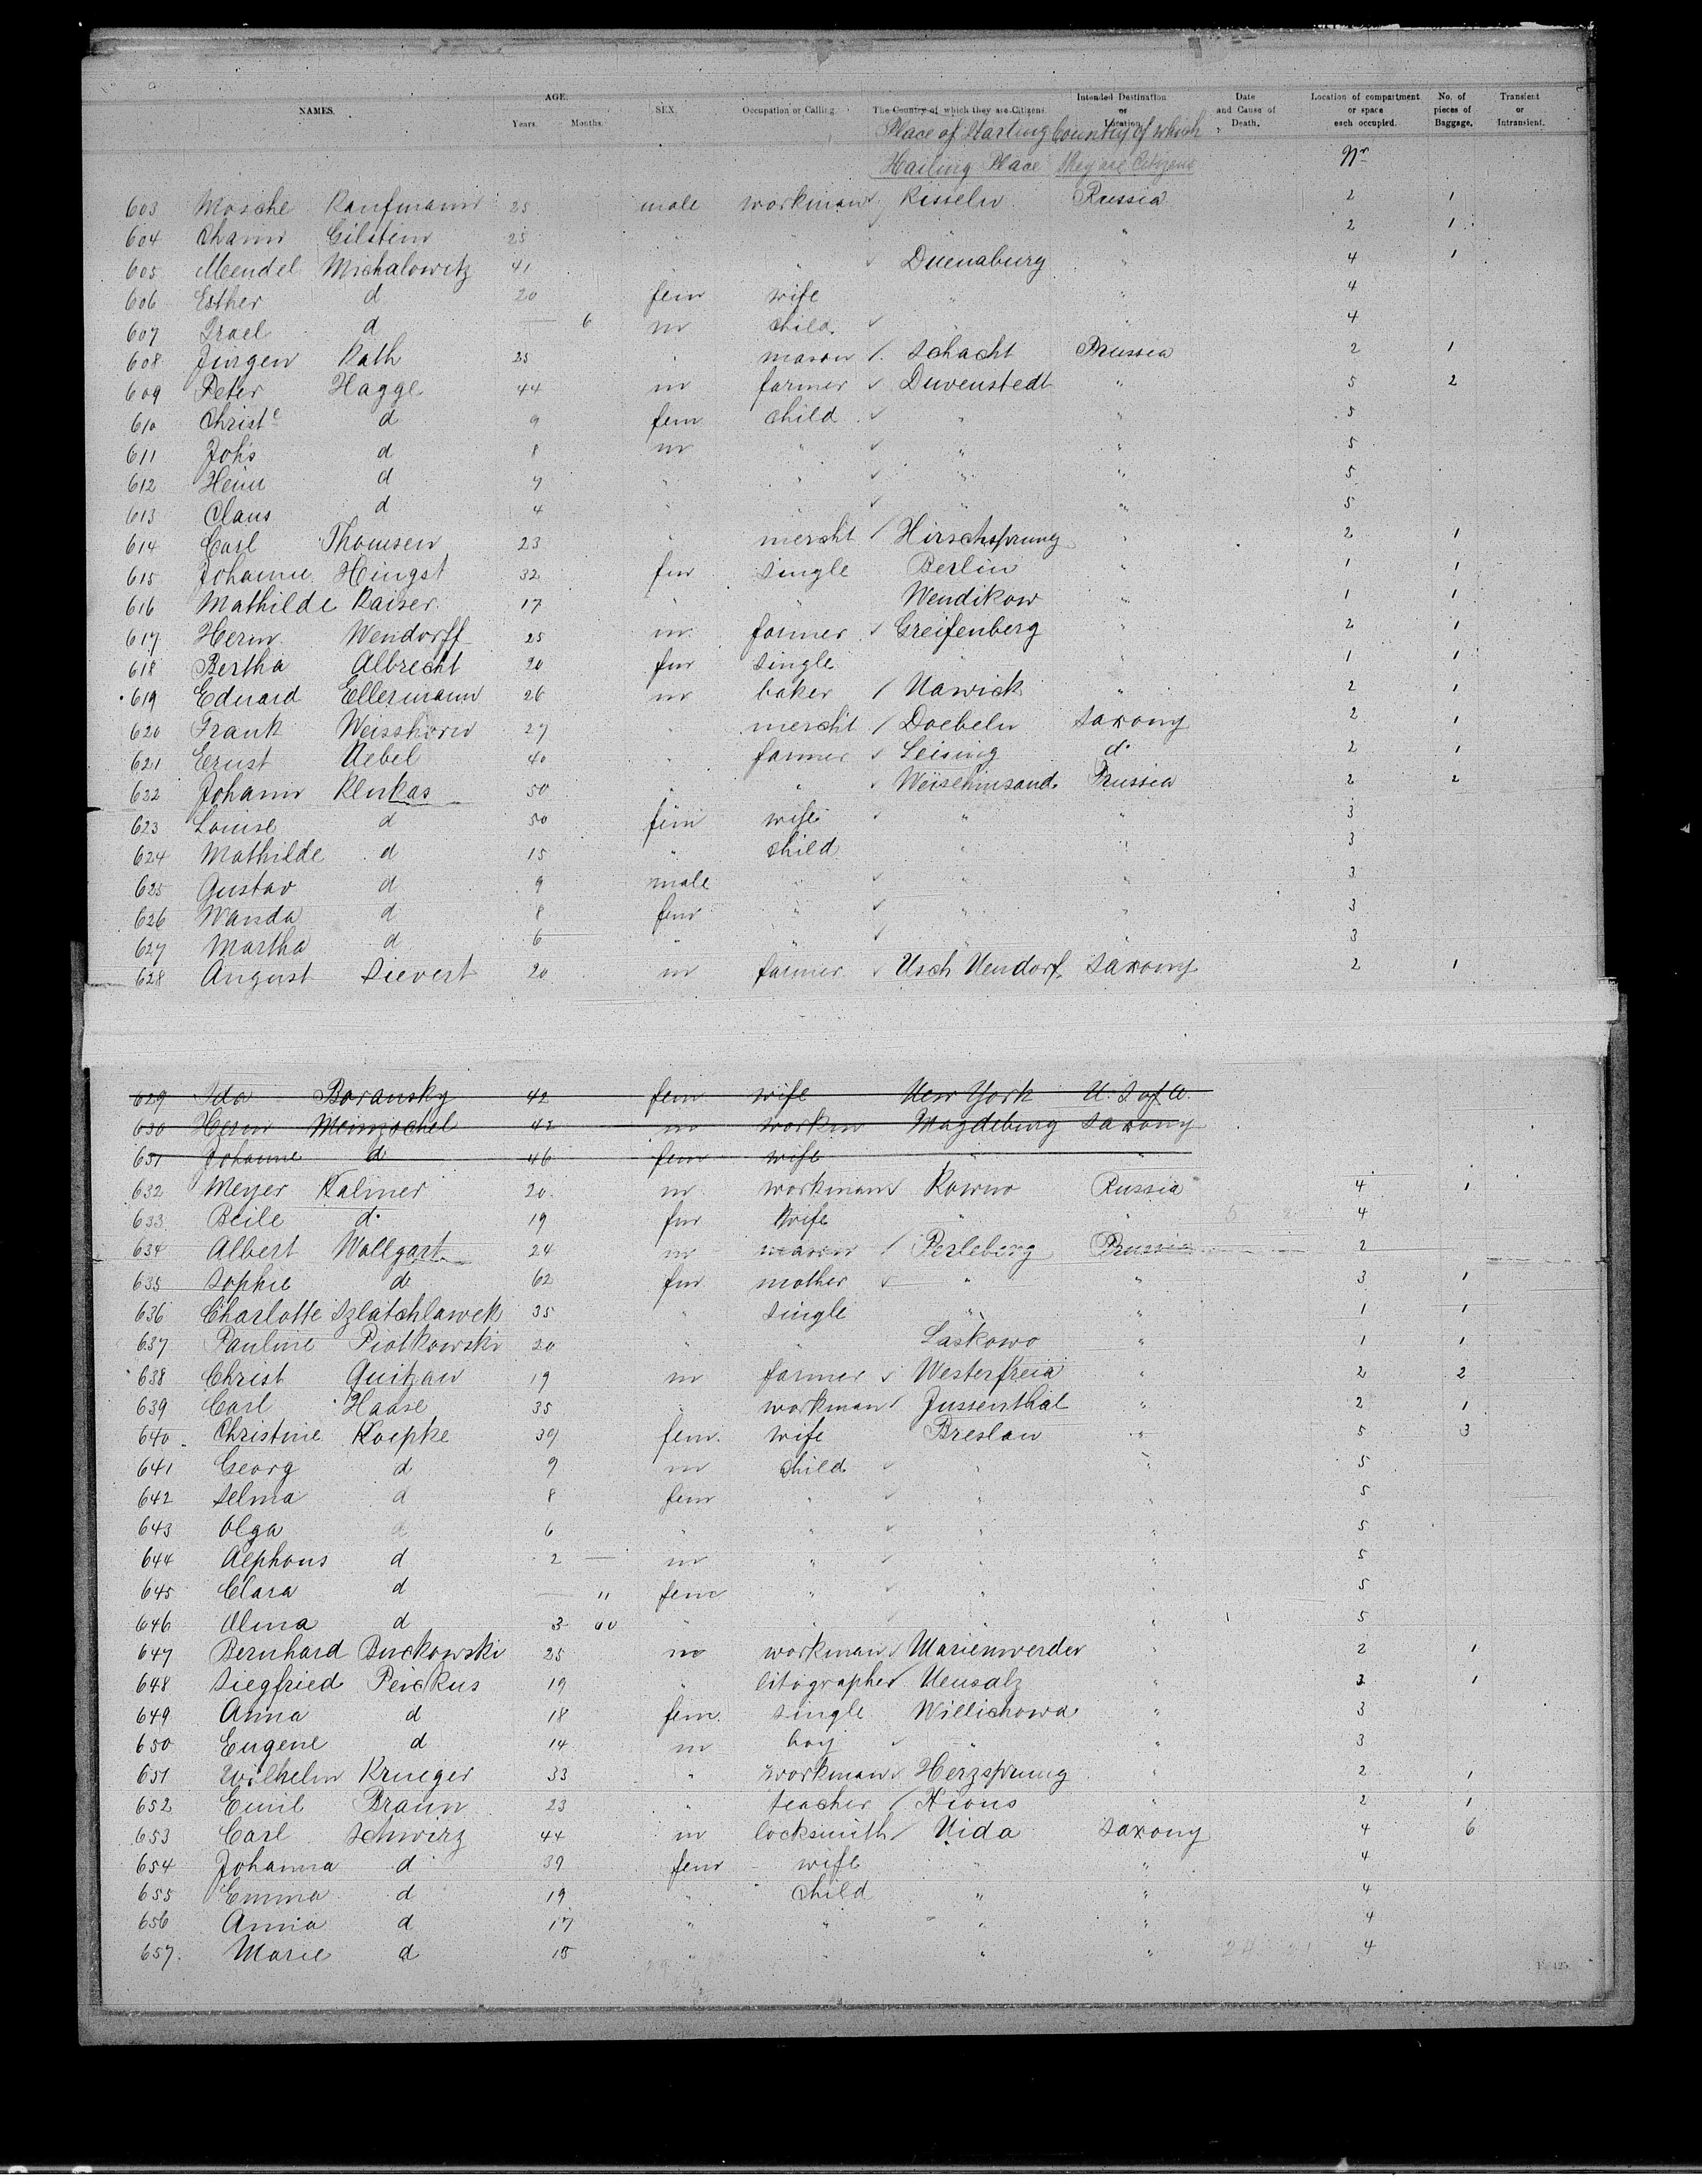 NAMES. AGE. Years. Months. SEX. Occupation or Calling. The Country of which they are Citizens. Intended Destination or Location. Date and Cause of Death. Location of compartment or space each occupied. No. of pieces of Baggage. Transient or Intransient.
Place of Starting Country of which
Hailing Place they are Citizens Nr
603 Mosche Kaufmann 25 male workman Kisseln Russia 2 1
604 Chann Gilstein 25 " " " " 2 1
605 Mendel Michalowitz 41 " " Duenaburg " 4 1
606 Esther d 20 fem wife " " 4
607 Israel d — 6 m child " " 4
608 Jürgen Rath 25 " mason Schacht Prussia 2 1
609 Peter Hagge 44 m farmer Duvenstedt " 5 2
610 Christe d 9 fem child " " 5
611 Johs d 8 m " " " 5
612 Heinr d 7 " " " " 5
613 Claus d 4 " " " " 5
614 Carl Thomsen 23 " mercht Hirschsprung " 2 1
615 Johanne Hingst 32 fem single Berlin " 1 1
616 Mathilde Kaiser 17 " " Wendikow " 1 1
617 Herm Wendorff 25 m farmer Greifenberg " 2 1
618 Bertha Albrecht 20 fem single " " 1 1
619 Eduard Ellermann 26 m baker Nawick " 2 1
620 Frank Weisshorn 27 " mercht Doebeln Saxony 2 1
621 Ernst Nebel 40 " farmer Leising do 2 1
622 Johann Klerkas 50 " " Prussia 2 2
623 Louise d 50 fem wife " " 3
624 Mathilde d 15 " child " " 3
625 Gustav d 9 male " " " 3
626 Wanda d 8 fem " " " 3
627 Martha d 6 " " " " 3
628 August Sievert 20 m farmer Usch Neudorf Saxony 2 1
629 Ida Boransky 42 fem wife New York U. S of A.
630 Herm 42 m workm Magdeburg Saxony
631 Johanne d 46 fem wife " "
632 Meyer Kalmer 20 m workman Kowno Russia 4 1
633 Beile do 19 fem wife " " 4
634 Albert Wollgart 24 m mason Perleberg Prussia 2
635 Sophie d 62 fem mother " " 3 1
636 Charlotte Szlatchlawek 35 " single " " 1 1
637 Pauline Piotkowski 20 " " Laskowo " 1 1
638 Christ Quitzau 19 m farmer Westerfreia " 2 2
639 Carl Haase 35 " workman Jussenthal " 2 1
640 Christine Koepke 39 fem. wife Breslau " 5 3
641 Georg d 9 m child " " 5
642 Selma d 8 fem " " " 5
643 Olga d 6 " " " " 5
644 Alphons d 2 — m " " " 5
645 Clara d — 11 fem " " " 5
646 Alma d 3 " " " " 5
647 Bernhard Buckowski 25 m workman Marienwerder " 2 1
648 Siegfried Peickus 19 " litographer Neusalz " 3 1
649 Anna d 18 fem. single Willichowa " 3
650 Eugene d 14 m boy " " 3
651 Wilhelm Krueger 33 " workman Herzsprung " 2 1
652 Emil Braun 23 " teacher Xions " 2 1
653 Carl Schwirz 44 m locksmith Nida Saxony 4 6
654 Johanna d 39 fem wife " " 4
655 Emma d 19 " child " " 4
656 Anna d 17 " " " " 4
657. Marie d 15 " " " " 4